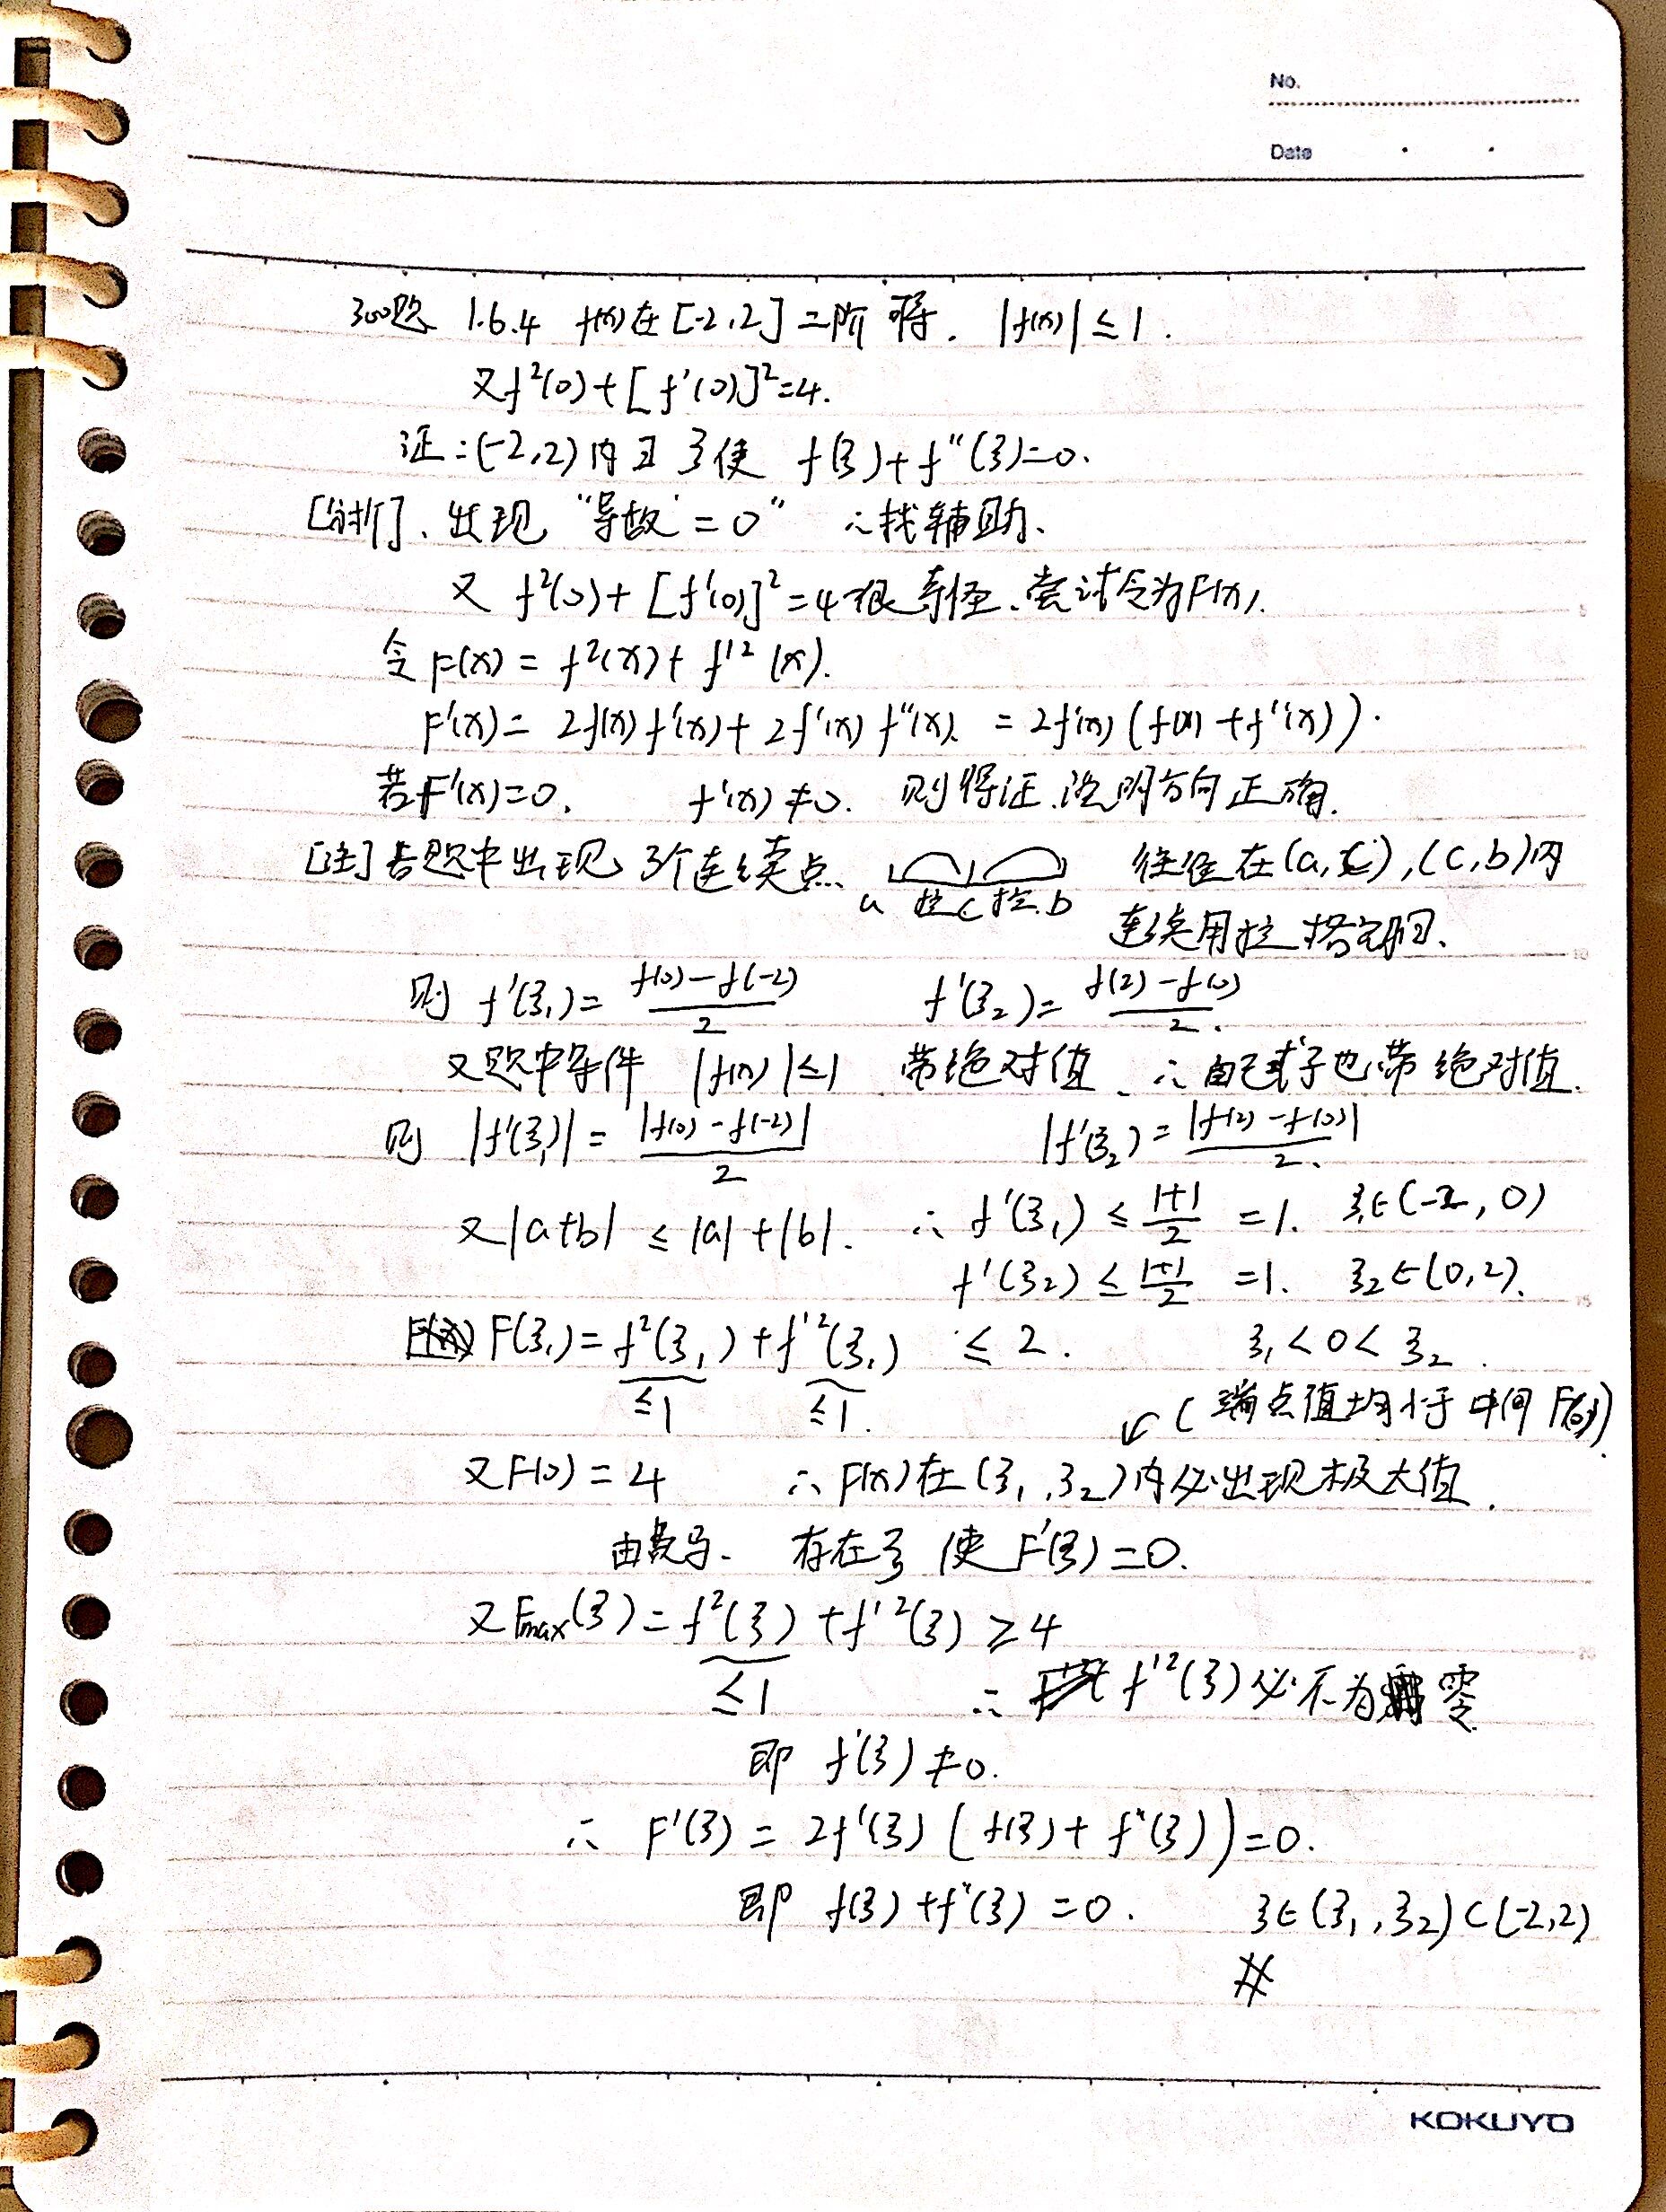 No.
Date
300题 1.6.4 f(x)在[-2,2]二阶可导. |f(x)|≤1.
又f²(0)+[f'(0)]²=4.
证:(-2,2)内∃ξ使 f(ξ)+f''(ξ)=0.
[分析]、出现"导数=0" ∴找辅助.
又 f²(0)+[f'(0)]²=4很奇怪.尝试令为F(x).
令F(x)=f²(x)+f'²(x).
F'(x)=2f(x)f'(x)+2f'(x)f''(x) =2f'(x)(f(x)+f''(x)).
若F'(x)=0. f'(x)≠0. 则得证.说明方向正确.
[注]若题中出现3个连续点、 a 拉 c 拉 b 往往在(a,c),(c,b)内
连续用拉格朗日.
则 f'(ξ₁)=\frac{f(0)-f(-2)}{2} f'(ξ₂)=\frac{f(2)-f(0)}{2}.
又题中条件 |f(x)|≤1 带绝对值、∴自己式子也带绝对值.
则 |f'(ξ₁)|=\frac{|f(0)-f(-2)|}{2} |f'(ξ₂)=\frac{|f(2)-f(0)|}{2}.
又|a+b|≤|a|+|b|. ∴ f'(ξ₁)≤\frac{1+1}{2}=1. ξ₁∈(-2,0)
f'(ξ₂)≤\frac{1+1}{2}=1. ξ₂∈(0,2).
F(ξ₁)=f²(ξ₁)+f'²(ξ₁) ≤2. ξ₁<0<ξ₂.
≤1 ≤1. ↙(端点值均小于中间F(0)).
又F(0)=4 ∴F(x)在(ξ₁,ξ₂)内必出现极大值.
由费马. 存在ξ使F'(ξ)=0.
又Fmax(ξ)=f²(ξ)+f'²(ξ)≥4
≤1 ∴ f'²(ξ)必不为零
即 f'(ξ)≠0.
∴ F'(ξ)=2f'(ξ)(f(ξ)+f''(ξ))=0.
即 f(ξ)+f''(ξ)=0. ξ∈(ξ₁,ξ₂)⊂(-2,2)
#
KOKUYO